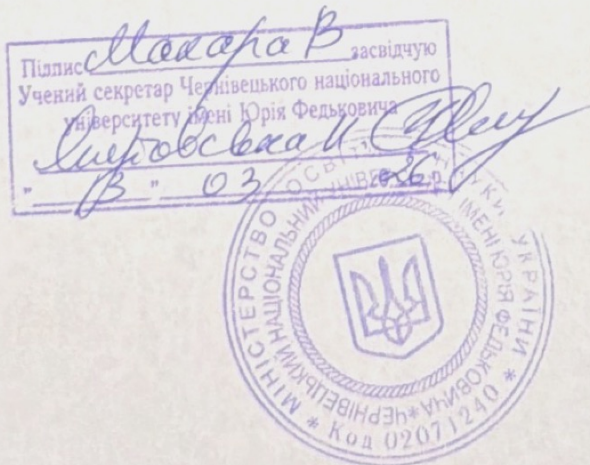 Підпис Макара В засвідчую
Учений секретар Чернівецького національного
університету імені Юрія Федьковича
" 13 " 03 2026 р.
МІНІСТЕРСТВО ОСВІТИ І НАУКИ УКРАЇНИ * Код 02071240 *
ЧЕРНІВЕЦЬКИЙ НАЦІОНАЛЬНИЙ УНІВЕРСИТЕТ ІМЕНІ ЮРІЯ ФЕДЬКОВИЧА *